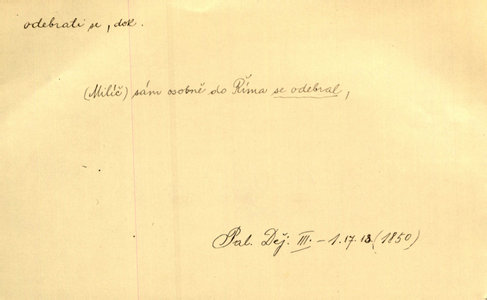 odebrati se, dok.
(Milíč) sám osobně do Říma se odebral,
Pal. Děj. III. – 1. 17. 18 (1850)